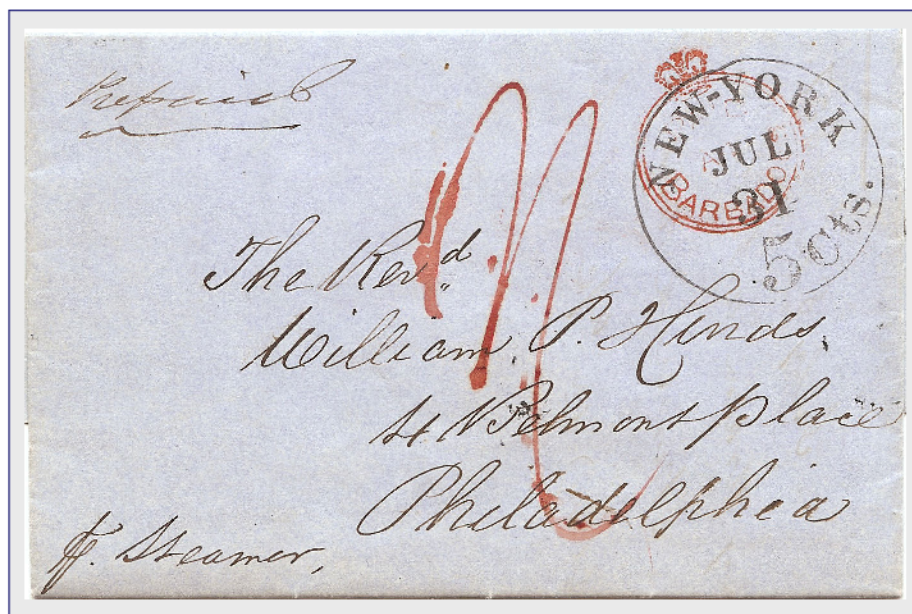 Prepaid
NEW-YORK
JUL
31
5 cts.
BARBADO
The Revd
William P. Hinds,
Belmont Place
Philadelphia
Steamer,